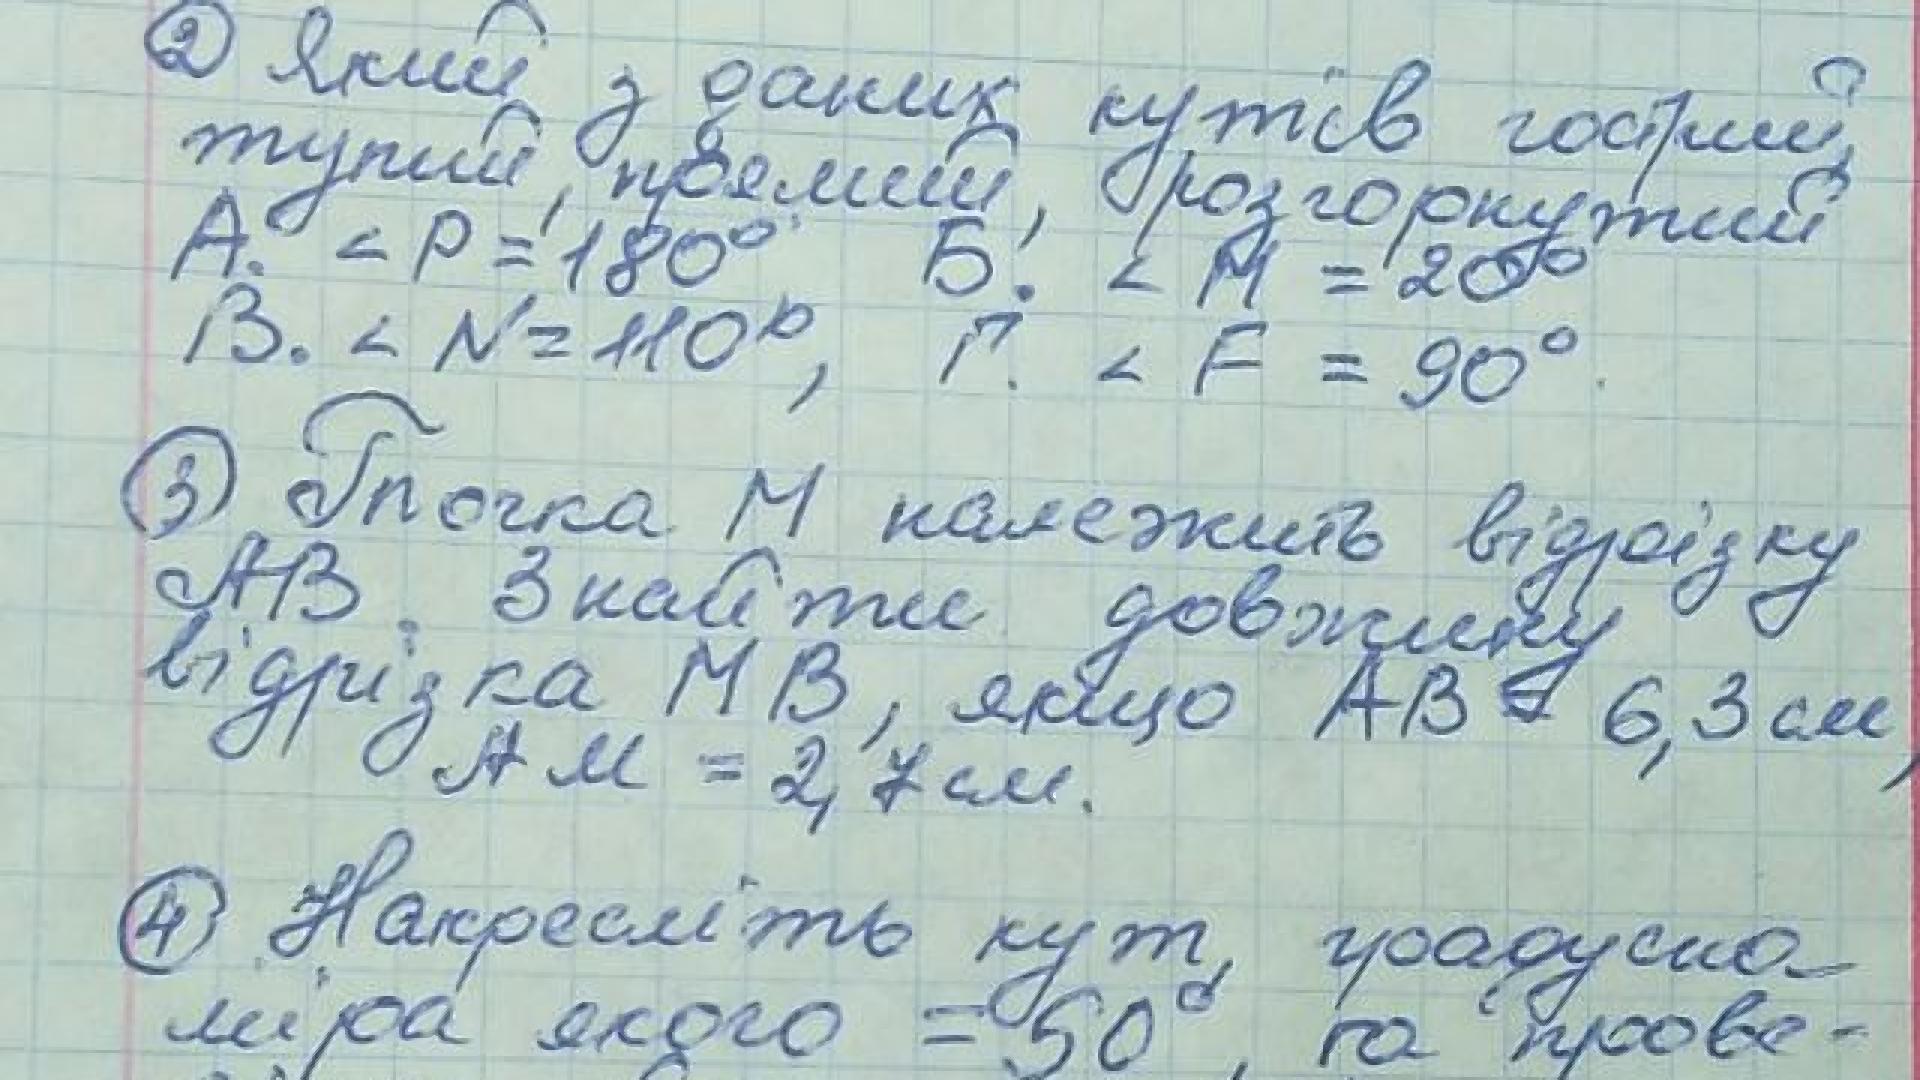 ② Який з даних кутів гострий,
тупий, прямий, розгорнутий
А. < P = 180° Б. < M = 20°
В. < N = 110°, Г. < F = 90°.
③ Точка М належить відрізку
АВ. Знайти довжину
відрізка МВ, якщо АВ = 6,3 см,
АМ = 2,7 см.
④ Накресліть кут, градусна
міра якого = 50°, та прове-